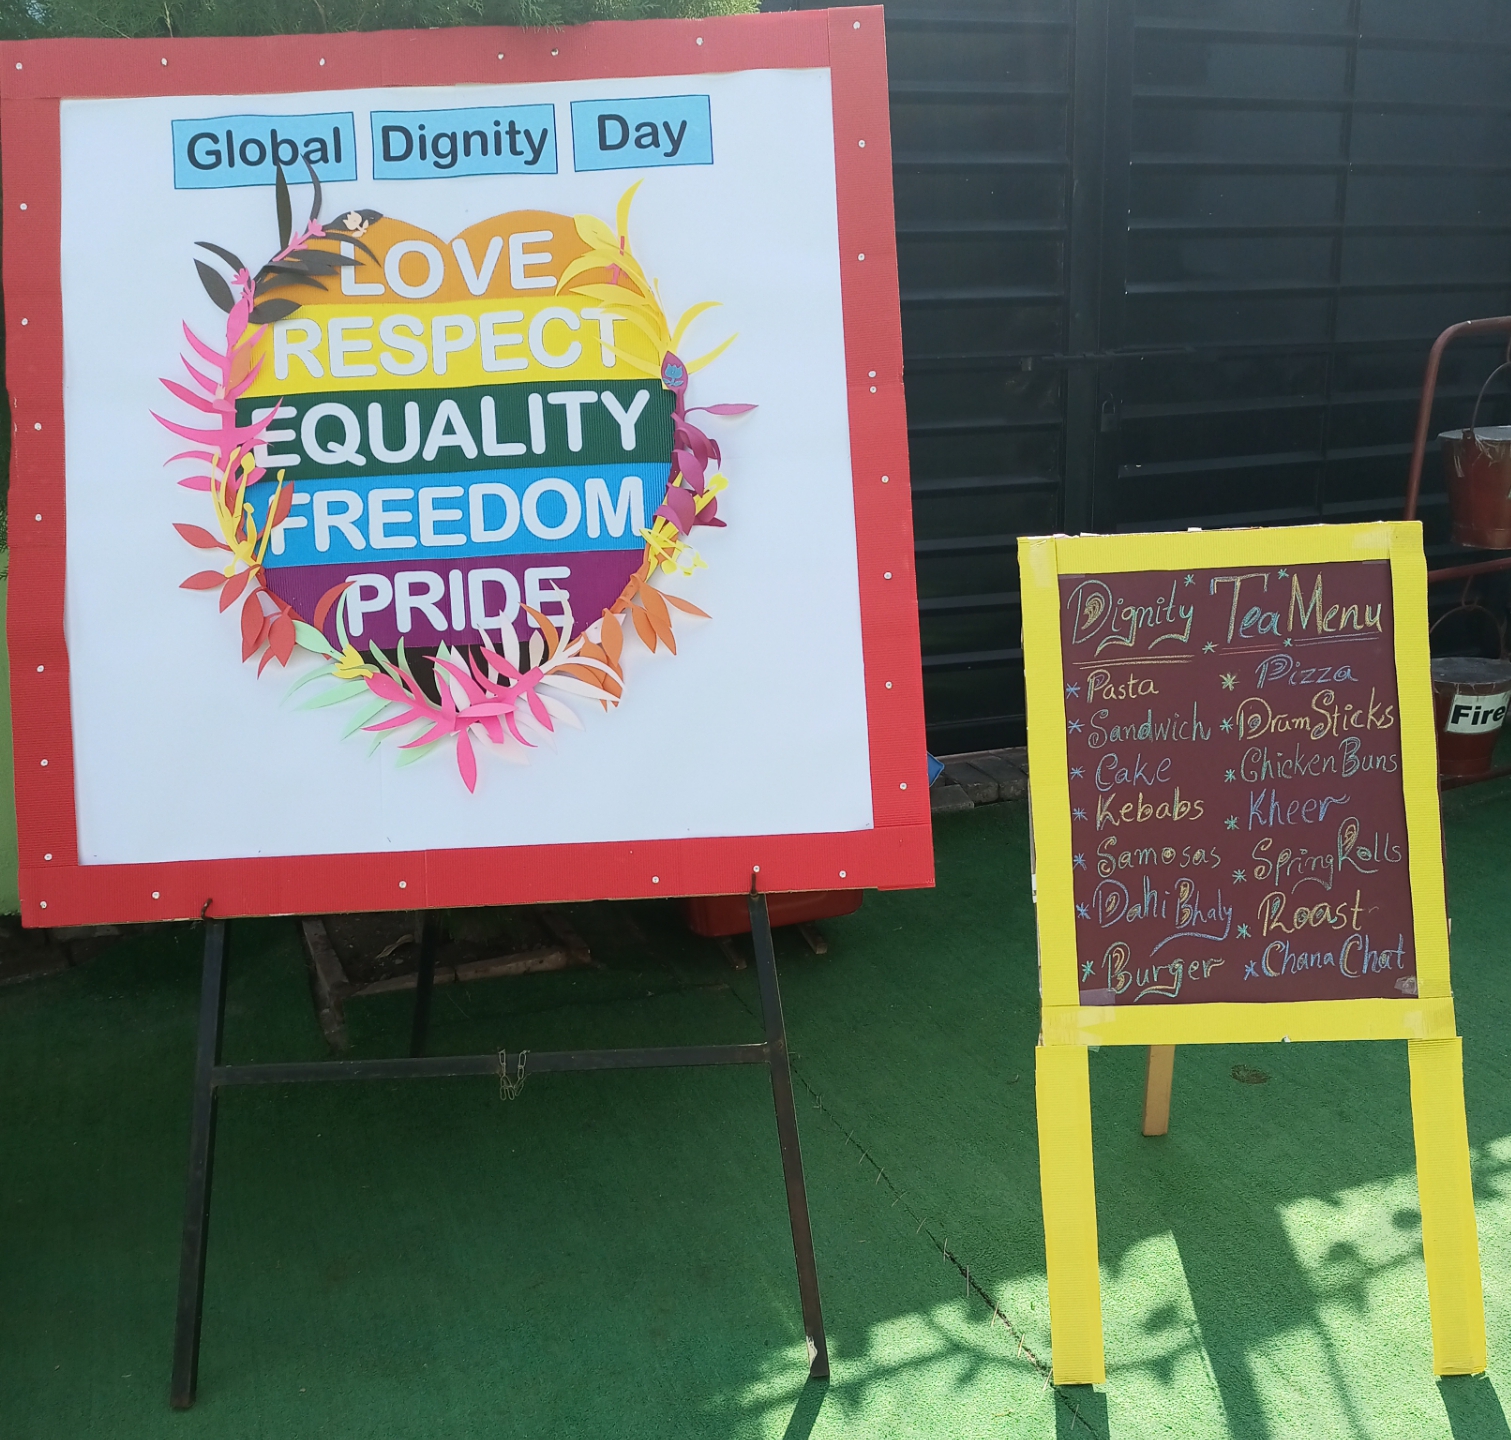 Global Dignity Day
LOVE
RESPECT
EQUALITY
FREEDOM
PRIDE
Dignity Tea Menu
* Pasta
* Sandwich
* Cake
* Kebabs
* Samosas
* Dahi Bhaly
* Burger
* Pizza
* Drum Sticks
* Chicken Buns
* Kheer
* Spring Rolls
* Roast
* Chana Chat
Fire